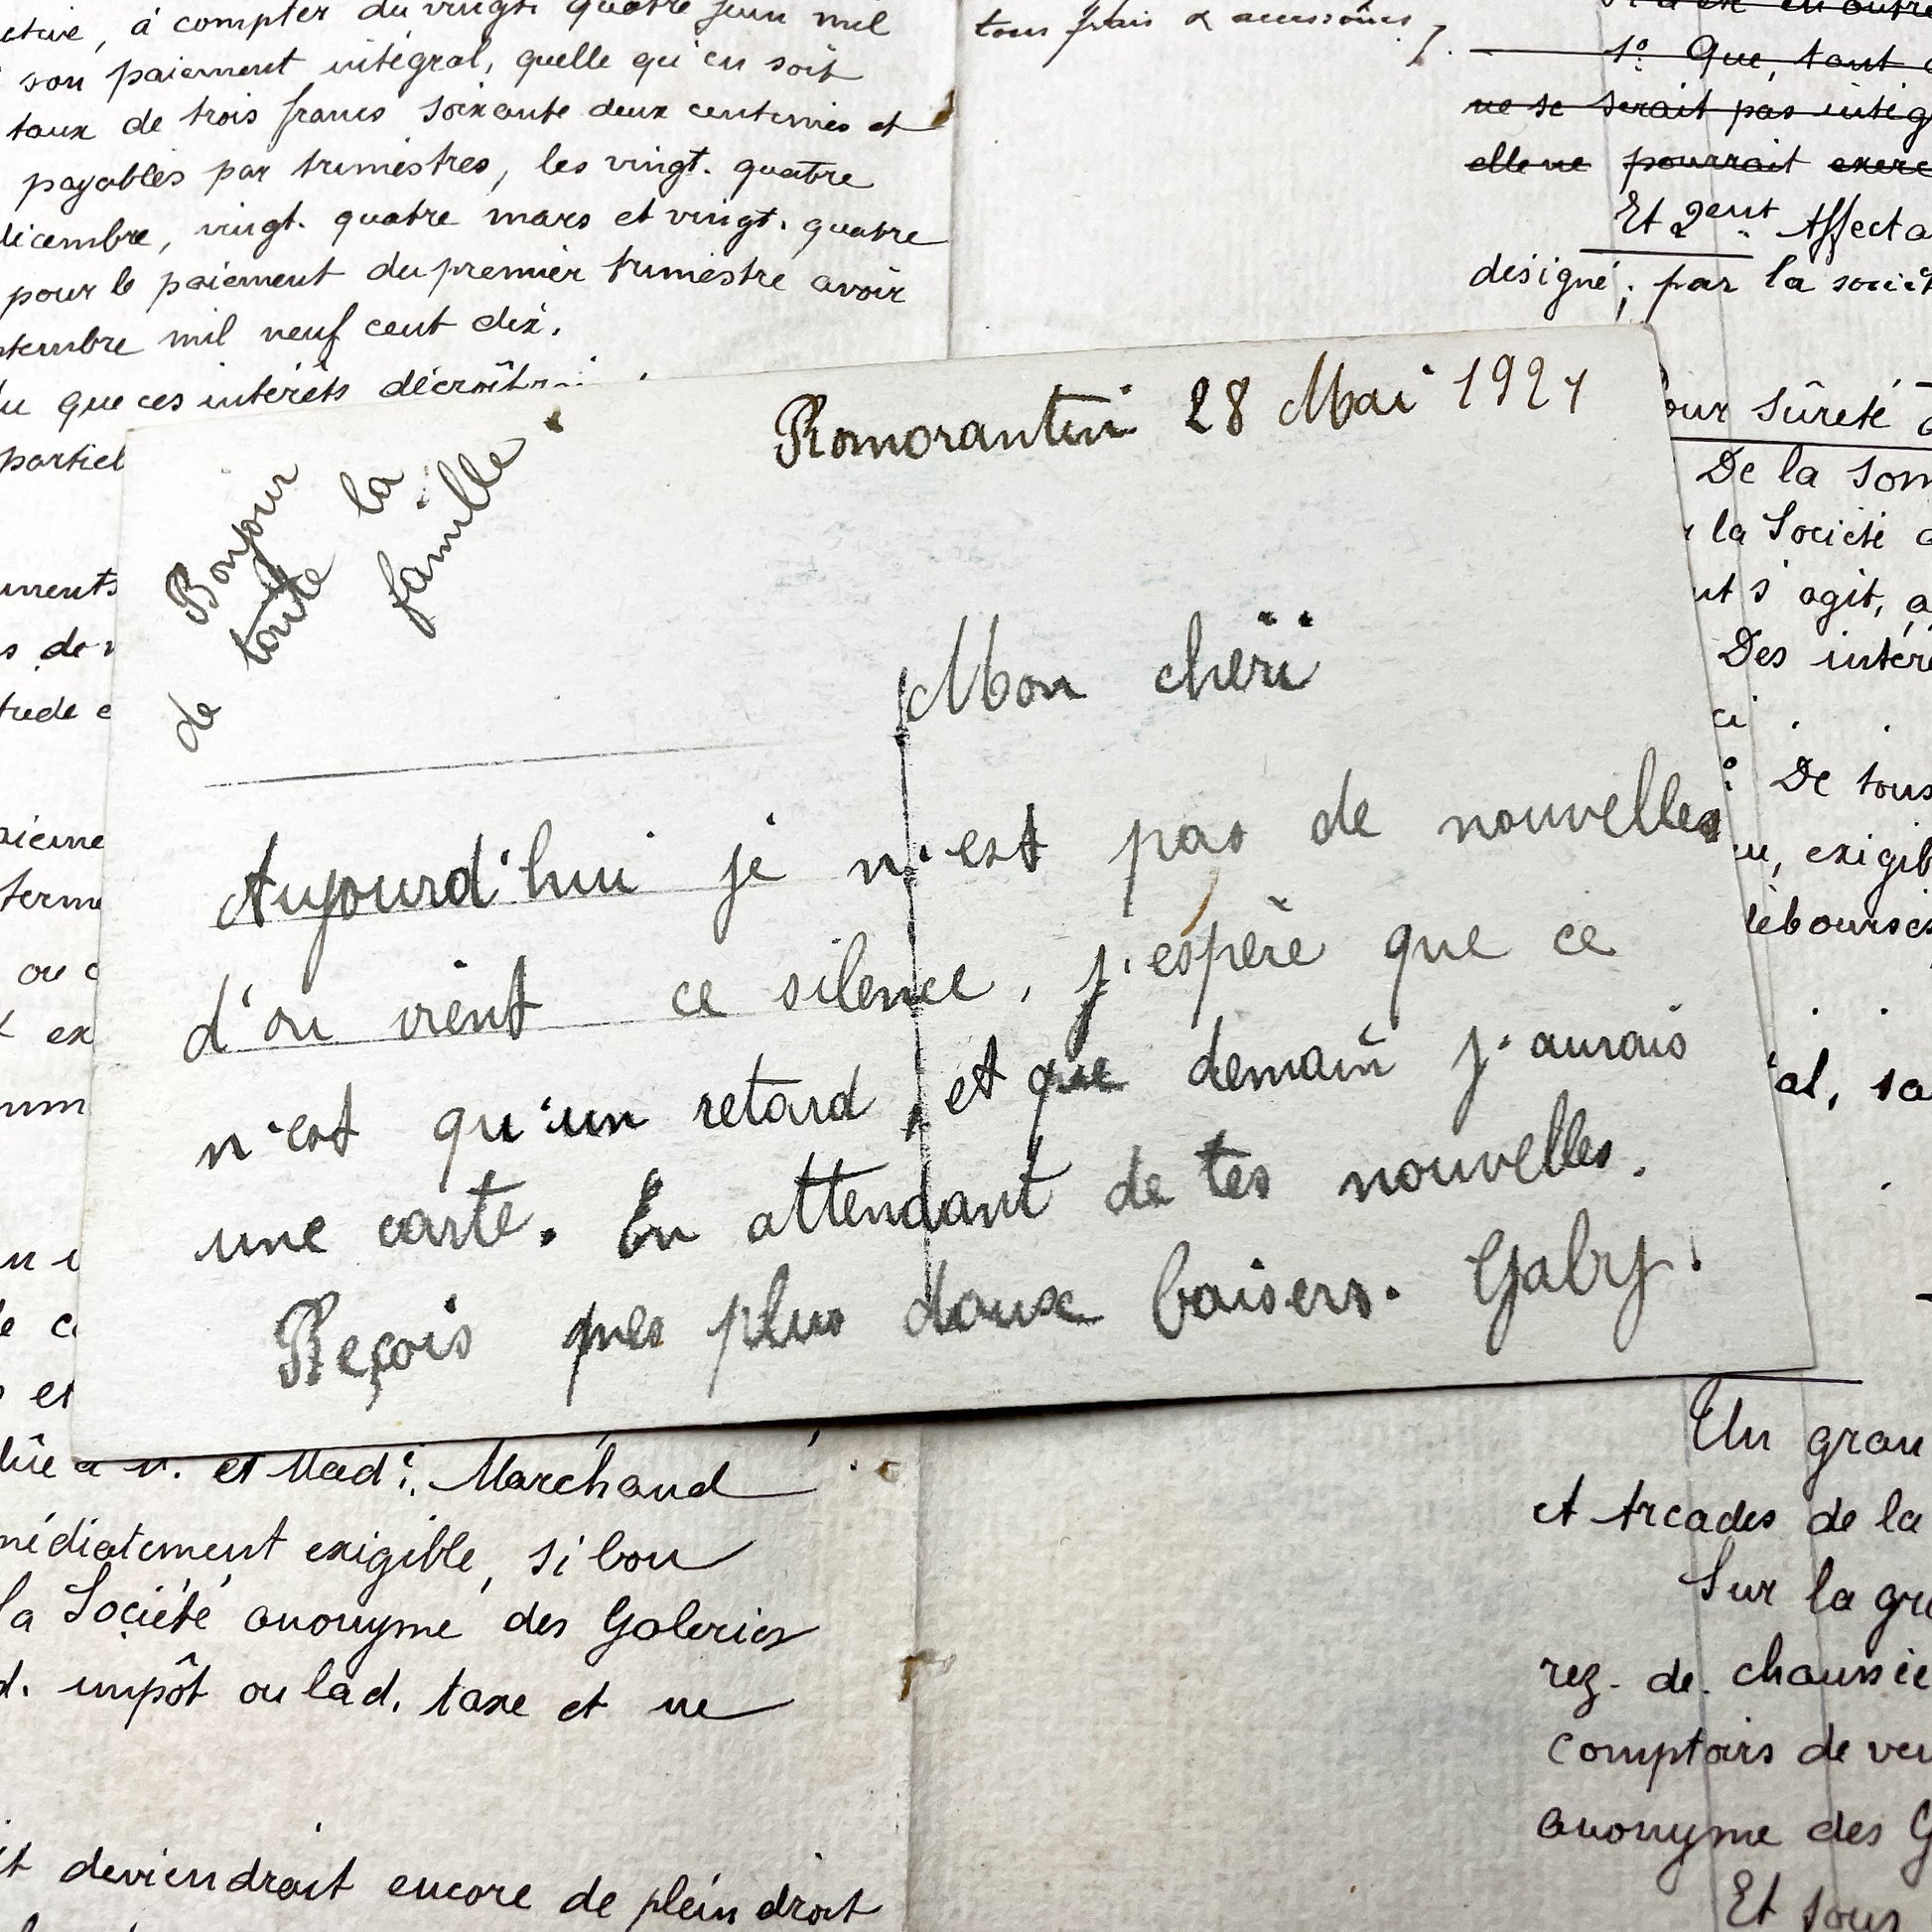 à compter du vingt. quatre juin mil
son paiement intégral, quelle qu'en soit
taux de trois francs soixante deux centimes et
payables par trimestres, les vingt. quatre
décembre, vingt. quatre mars et vingt. quatre
pour le paiement du premier trimestre avoir
mil neuf cent dix.
que ces intérêts
tous frais & accessoires
1º. Que, tant
ne se serait pas
elle ne pourrait
Et 2ent. Affecta
désigné, par la
sûreté
De la
la Société
s'agit,
Des
ci . .
De tous
exigib
Romorantin 28 Mai 1921
Bonjour
de toute la
famille
Mon chéri
Aujourd'hui je n'est pas de nouvelles
d'ou vient ce silence, j'espère que ce
n'est qu'un retard, et que demain j'aurais
une carte. En attendant de tes nouvelles.
Reçois mes plus doux baisers. Gaby.
et Mad. Marchand
exigible, si bon
la Société anonyme des Galeries
impôt ou lad. taxe et ne
deviendrait encore de plein droit
Un gran
et Arcades de la
Sur la
rez. de. chaussée
comptoirs de
anonyme des G
Et sous